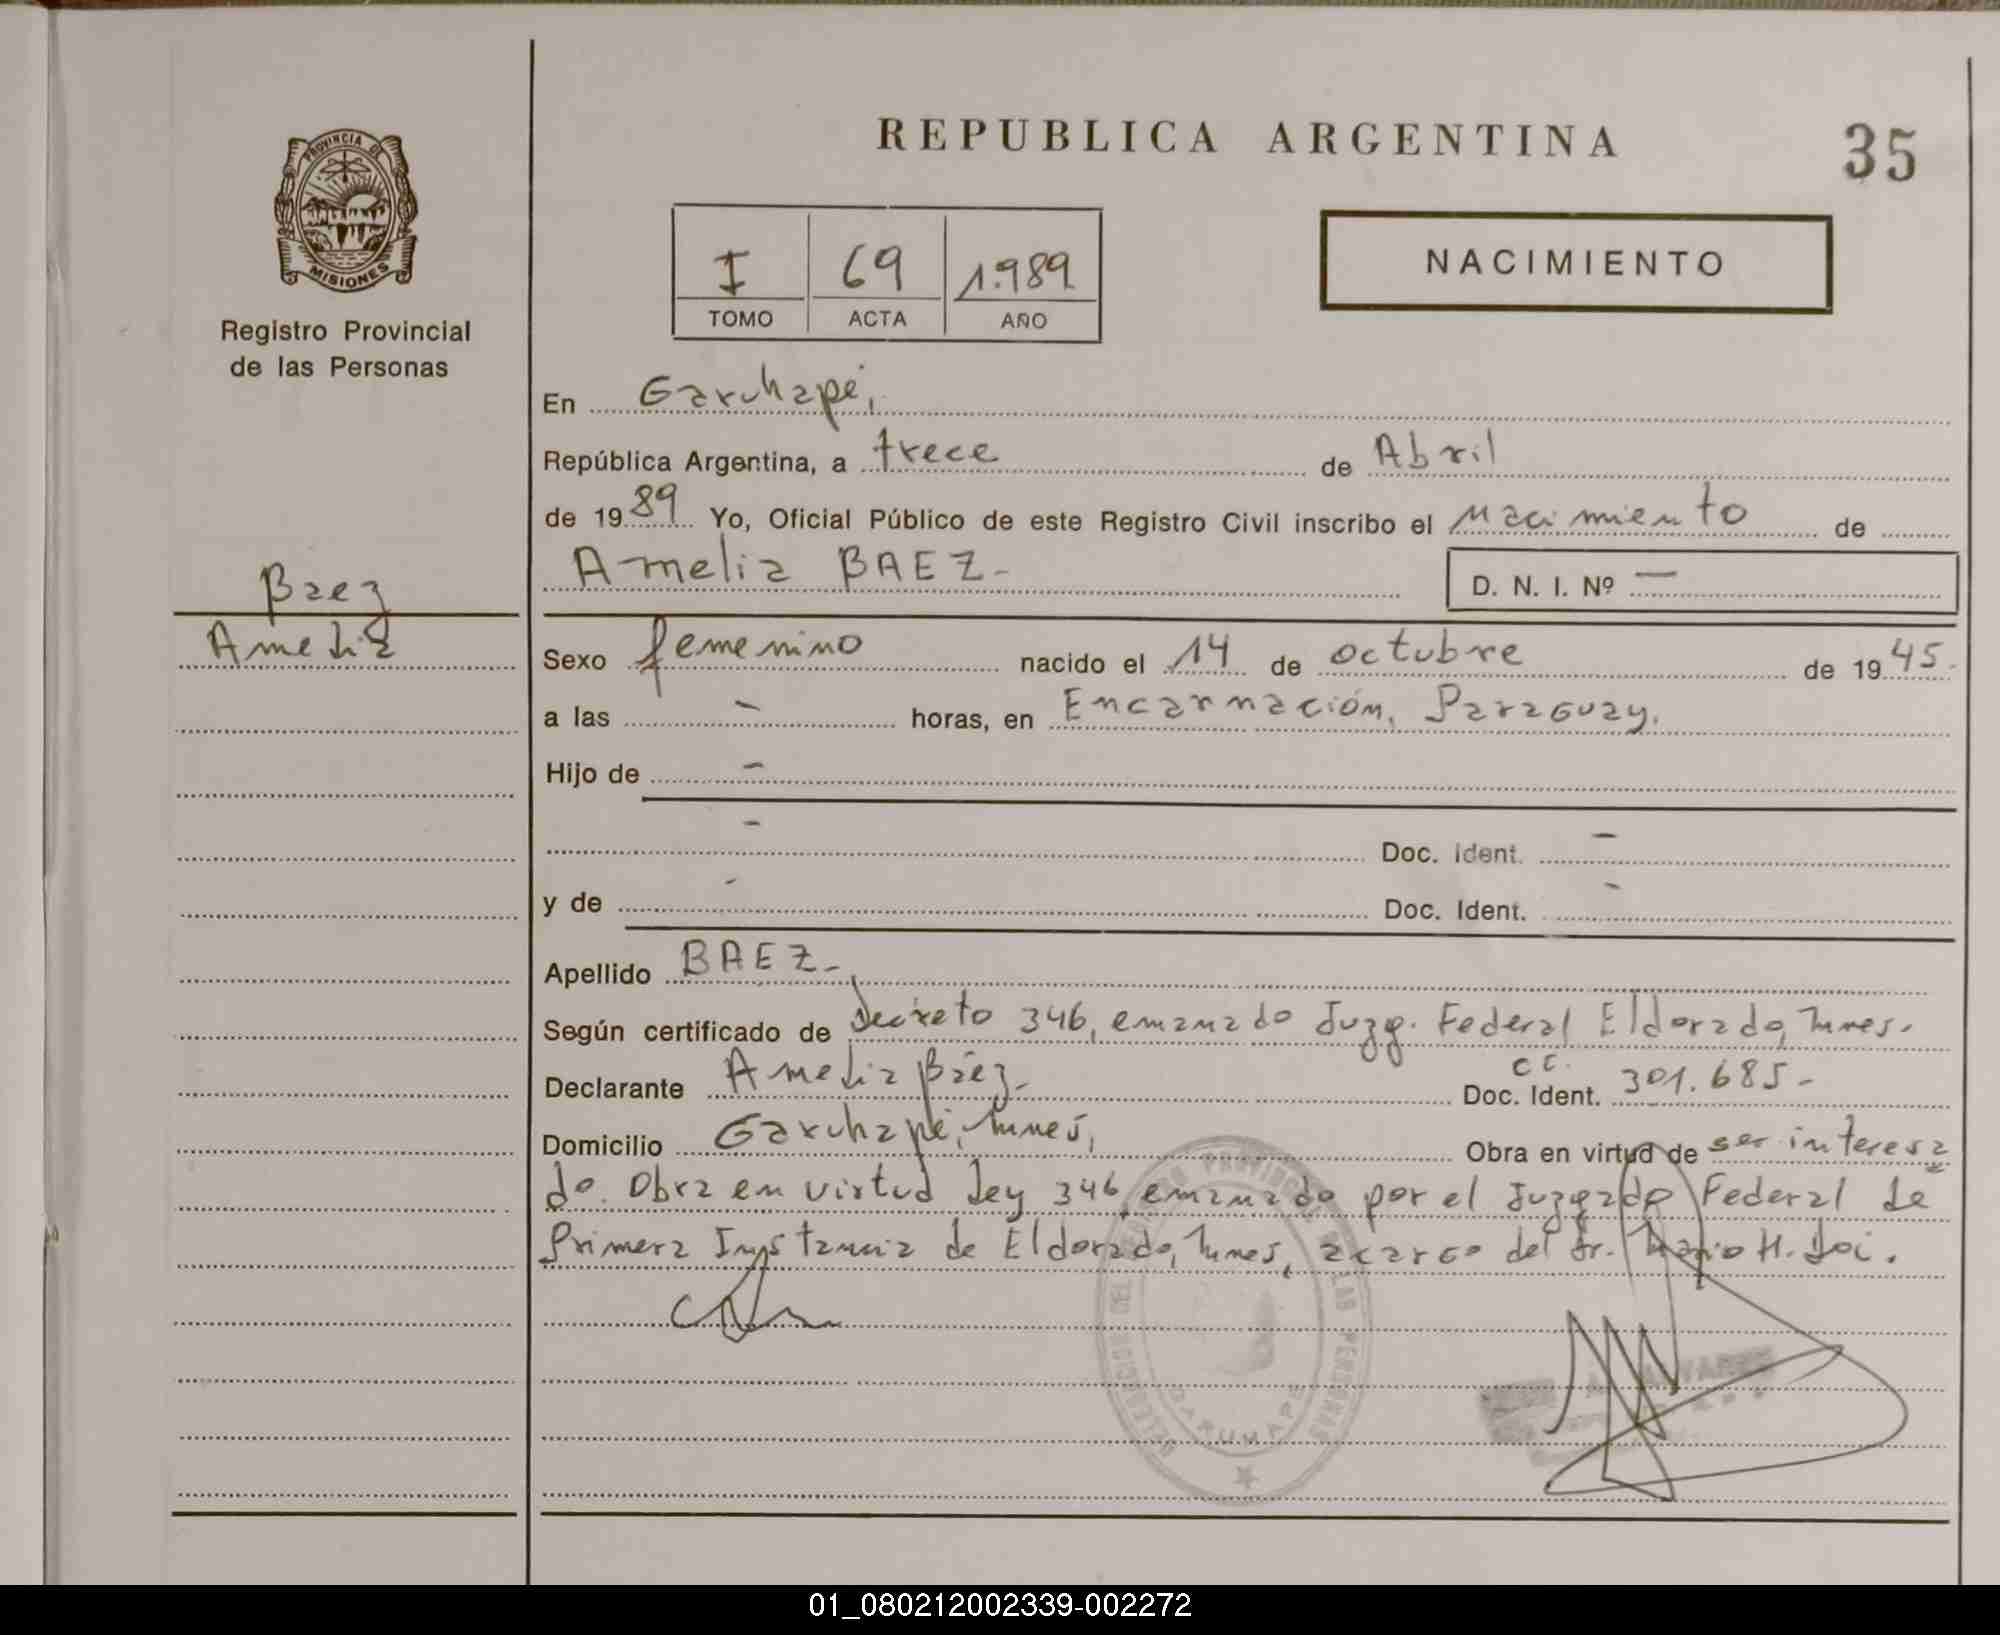 REPUBLICA ARGENTINA
35
PROVINCIA DE
MISIONES
Registro Provincial
de las Personas
I 69 1.989
TOMO ACTA AÑO
NACIMIENTO
En Garuhapé,
República Argentina, a trece de Abril
de 1989 Yo, Oficial Público de este Registro Civil inscribo el Nacimiento de
Amelia BAEZ-
D. N. I. Nº —
Baez
Amelia
Sexo femenino nacido el 14 de octubre de 1945.
a las - horas, en Encarnación, Paraguay.
Hijo de -
- Doc. Ident. -
y de - Doc. Ident. -
Apellido BAEZ-
Según certificado de decreto 346, emanado Juzg. Federal Eldorado, Mnes.
Declarante Amelia Báez- Doc. Ident. CC. 301.685-
Domicilio Garuhapé, Mnes, Obra en virtud de ser interesa
do. Obra en virtud Ley 346, emanado por el Juzgado Federal de
Primera Instancia de Eldorado, Mnes, a cargo del Dr. Mario H. Doi.
DELEGACION DEL REGISTRO PROVINCIAL DE LAS PERSONAS
GARUHAPE
01_080212002339-002272